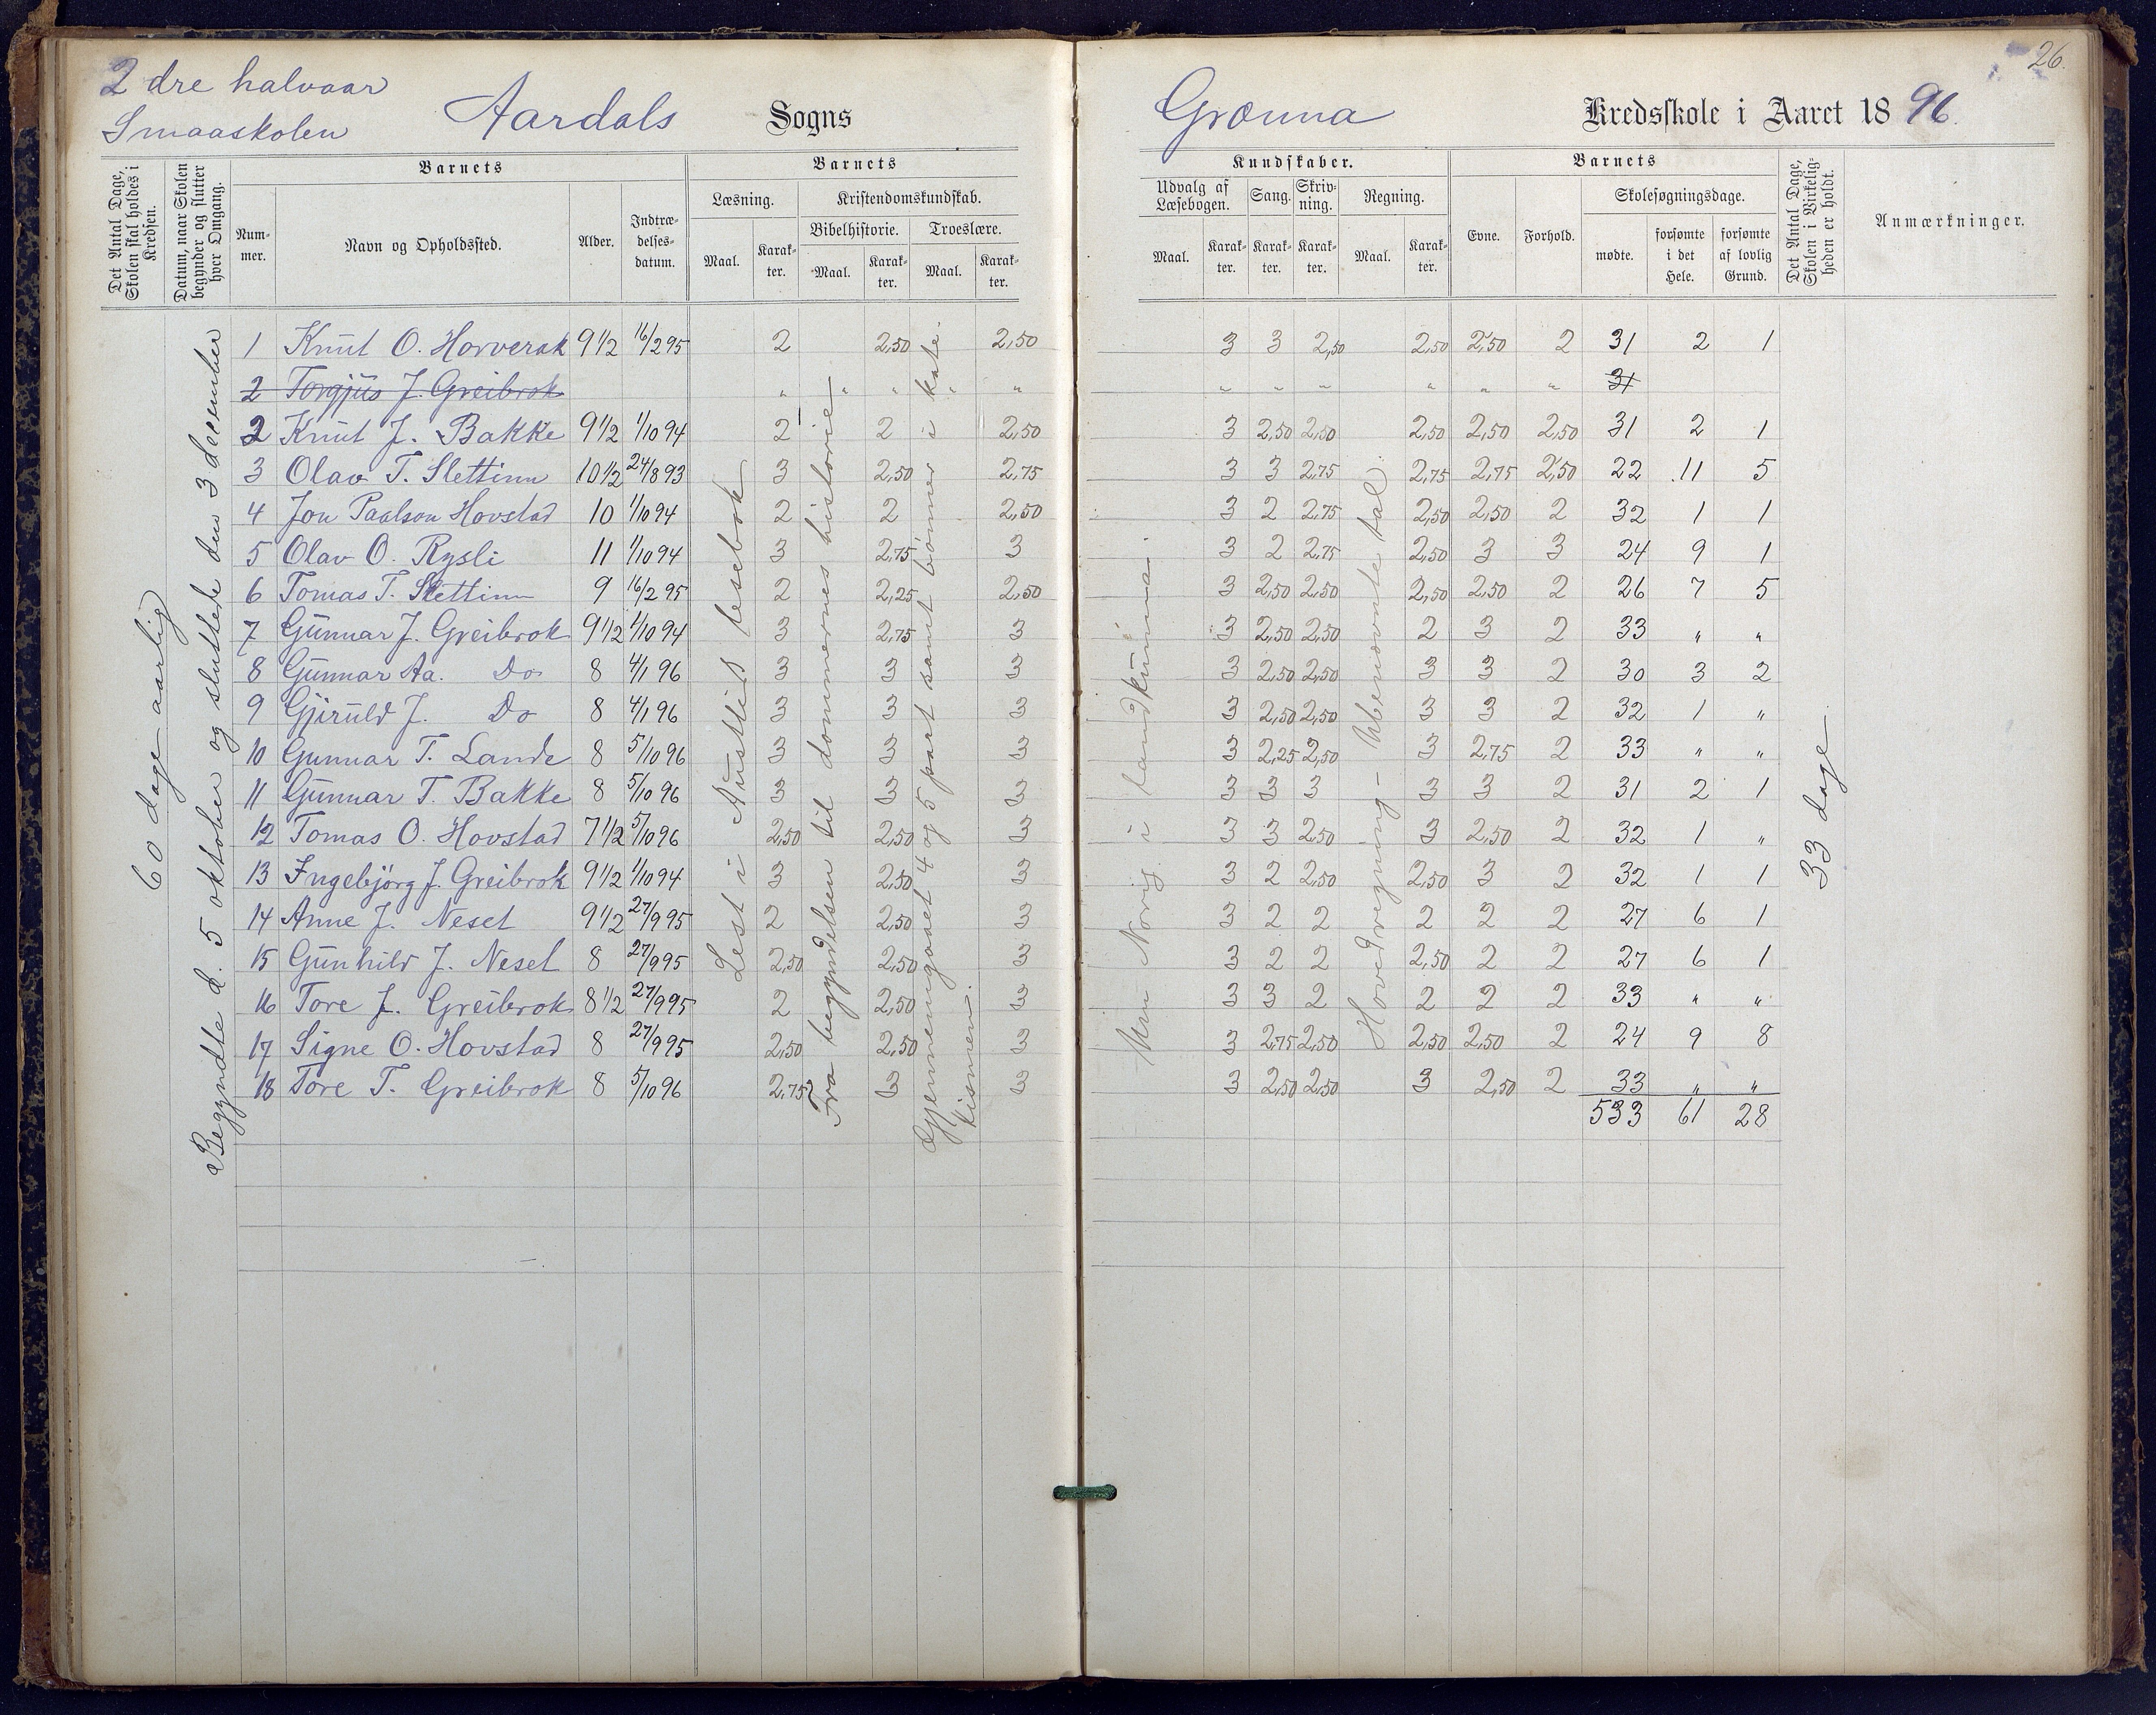 26.
2 dre halvaar
Smaaskolen
Aardals Sogns
Grønna Kredsskole i Aaret 1896.
Det Antal Dage, Skolen skal holdes i Kredsen.
Datum, naar Skolen begynder og slutter hver Omgang.
Barnets
Nummer.
Navn og Opholdssted.
Alder.
Indtrædelsesdatum.
Barnets
Læsning.
Maal.
Karakter.
Kristendomskundskab.
Bibelhistorie.
Maal.
Karakter.
Troeslære.
Maal.
Karakter.
Kundskaber.
Udvalg af Læsebogen.
Maal.
Karakter.
Sang.
Karakter.
Skrivning.
Karakter.
Regning.
Maal.
Karakter.
Barnets
Evne.
Forhold.
Skolesøgningsdage.
mødte.
forsømte i det Hele.
forsømte af lovlig Grund.
Det Antal Dage, Skolen i Virkeligheden er holdt.
Anmærkninger.
60 dage aarlig
Begyndte d. 5 oktober og sluttede den 3 december
Lest i Austlid lesebok
Fra begyndelsen til dommernes historie
Gjennemgaaet 4 og 5 part samt bønner i katekismen.
Um Norig i landkunna.
Hovedregning – Ubenævnte tal
33 dage
1 Knut O. Horverak 9 1/2 16/2 95 2 2,50 2,50 3 3 2,50 2,50 2,50 2 31 2 1
2 Torgjus J. Greibrok " " " " " " " " " " " 31
2 Knut J. Bakke 9 1/2 1/10 94 2 2 2,50 3 2,50 2,50 2,50 2,50 2,50 31 2 1
3 Olav T. Slettinn 10 1/2 24/8 93 3 2,50 2,75 3 3 2,75 2,75 2,75 2,50 22 11 5
4 Jon Paalson Hovstad 10 1/10 94 2 2 2,50 3 2 2,75 2,50 2,50 2 32 1 1
5 Olav O. Rysli 11 1/10 94 3 2,75 3 3 2 2,75 2,50 3 3 24 9 1
6 Tomas T. Slettinn 9 16/2 95 2 2,25 2,50 3 2,50 2,50 2,50 2,50 2 26 7 5
7 Gunnar J. Greibrok 9 1/2 1/10 94 3 2,75 3 3 2,50 2,50 2 3 2 33 " "
8 Gunnar Aa. Do 8 4/1 96 3 3 3 3 2,50 2,50 3 3 2 30 3 2
9 Gjiruld J. Do 8 4/1 96 3 3 3 3 2,50 2,50 3 3 2 32 1 "
10 Gunnar T. Lande 8 5/10 96 3 3 3 3 2,25 2,50 3 2,75 2 33 " "
11 Gunnar T. Bakke 8 5/10 96 3 3 3 3 3 3 3 3 2 31 2 1
12 Tomas O. Hovstad 7 1/2 5/10 96 2,50 2,50 3 3 3 2,50 3 2,50 2 32 1 "
13 Ingebjörg J. Greibrok 9 1/2 1/10 94 3 2,50 3 3 2 2,50 2,50 3 2 32 1 1
14 Anne J. Neset 9 1/2 27/9 95 2 2,50 3 3 2 2 2 2 2 27 6 1
15 Gunhild J. Neset 8 27/9 95 2,50 2,50 3 3 2 2 2,50 2 2 27 6 1
16 Tore J. Greibrok 8 1/2 27/9 95 2 2,50 3 3 3 2 2 2 2 33 " "
17 Signe O. Hovstad 8 27/9 95 2,50 2,50 3 3 2,75 2,50 2,50 2,50 2 24 9 8
18 Tore T. Greibrok 8 5/10 96 2,75 3 3 3 2,50 2,50 3 2,50 2 33 " "
533 61 28